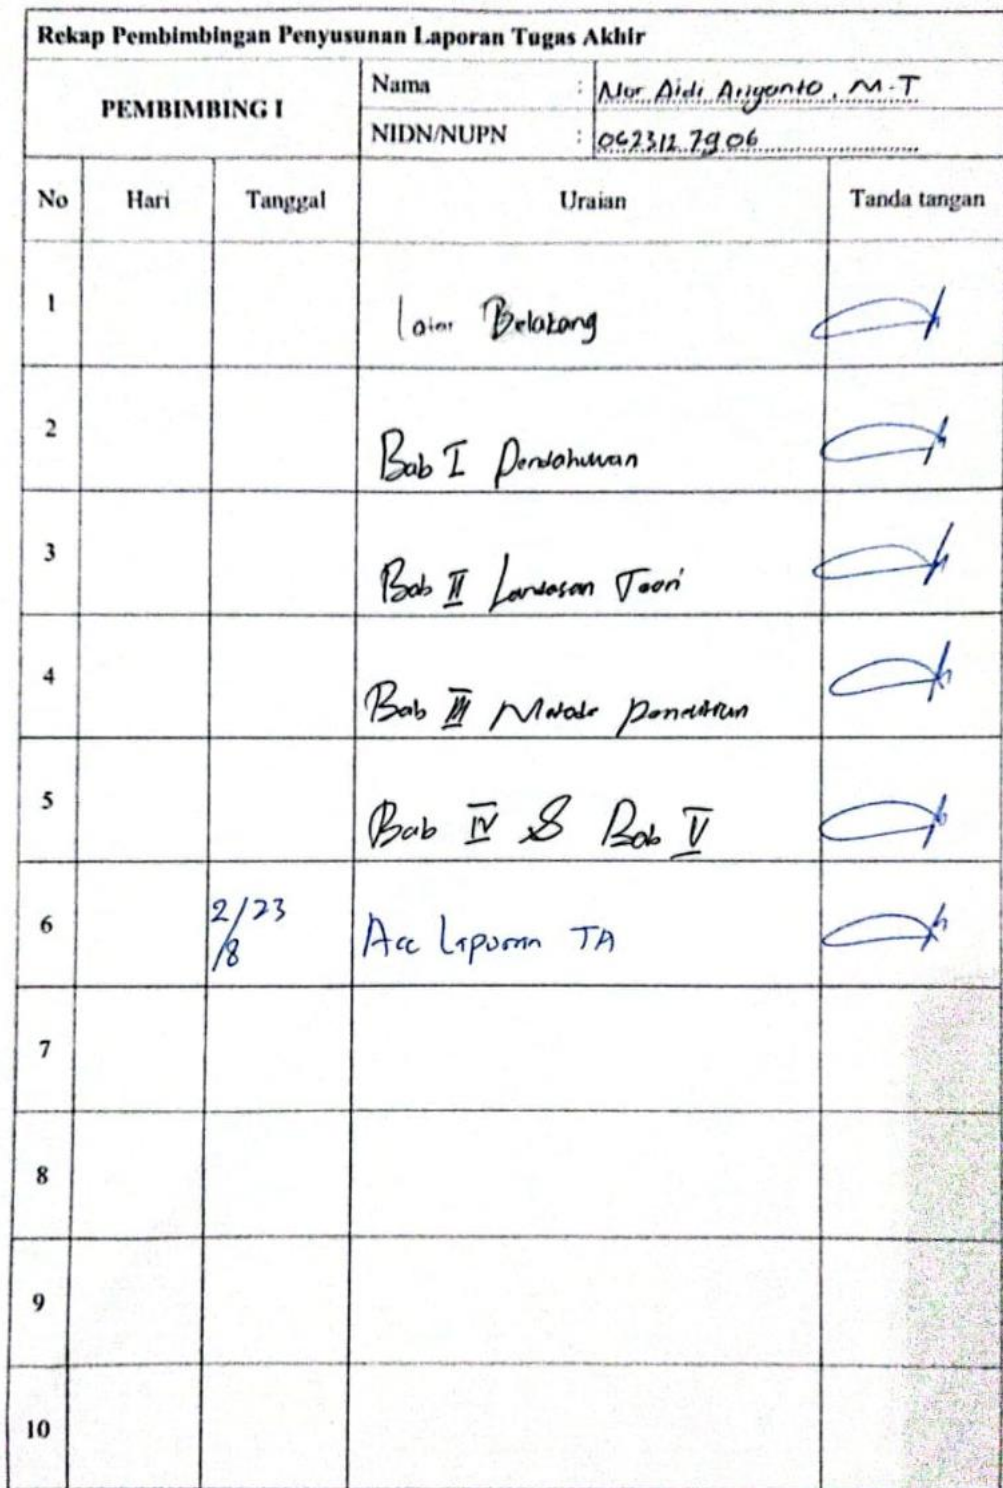 Rekap Pembimbingan Penyusunan Laporan Tugas Akhir
PEMBIMBING I
Nama : Nor Aidi Ariyanto, M.T
NIDN/NUPN : 0623127906
No Hari Tanggal Uraian Tanda tangan
1 Latar Belakang
2 Bab I Pendahuluan
3 Bab II Landasan Teori
4 Bab III Metode Penelitian
5 Bab IV & Bab V
6 2/23 /8 Acc Laporan TA
7
8
9
10